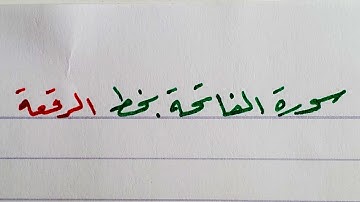 سورة الفاتحة بخط الرقعة